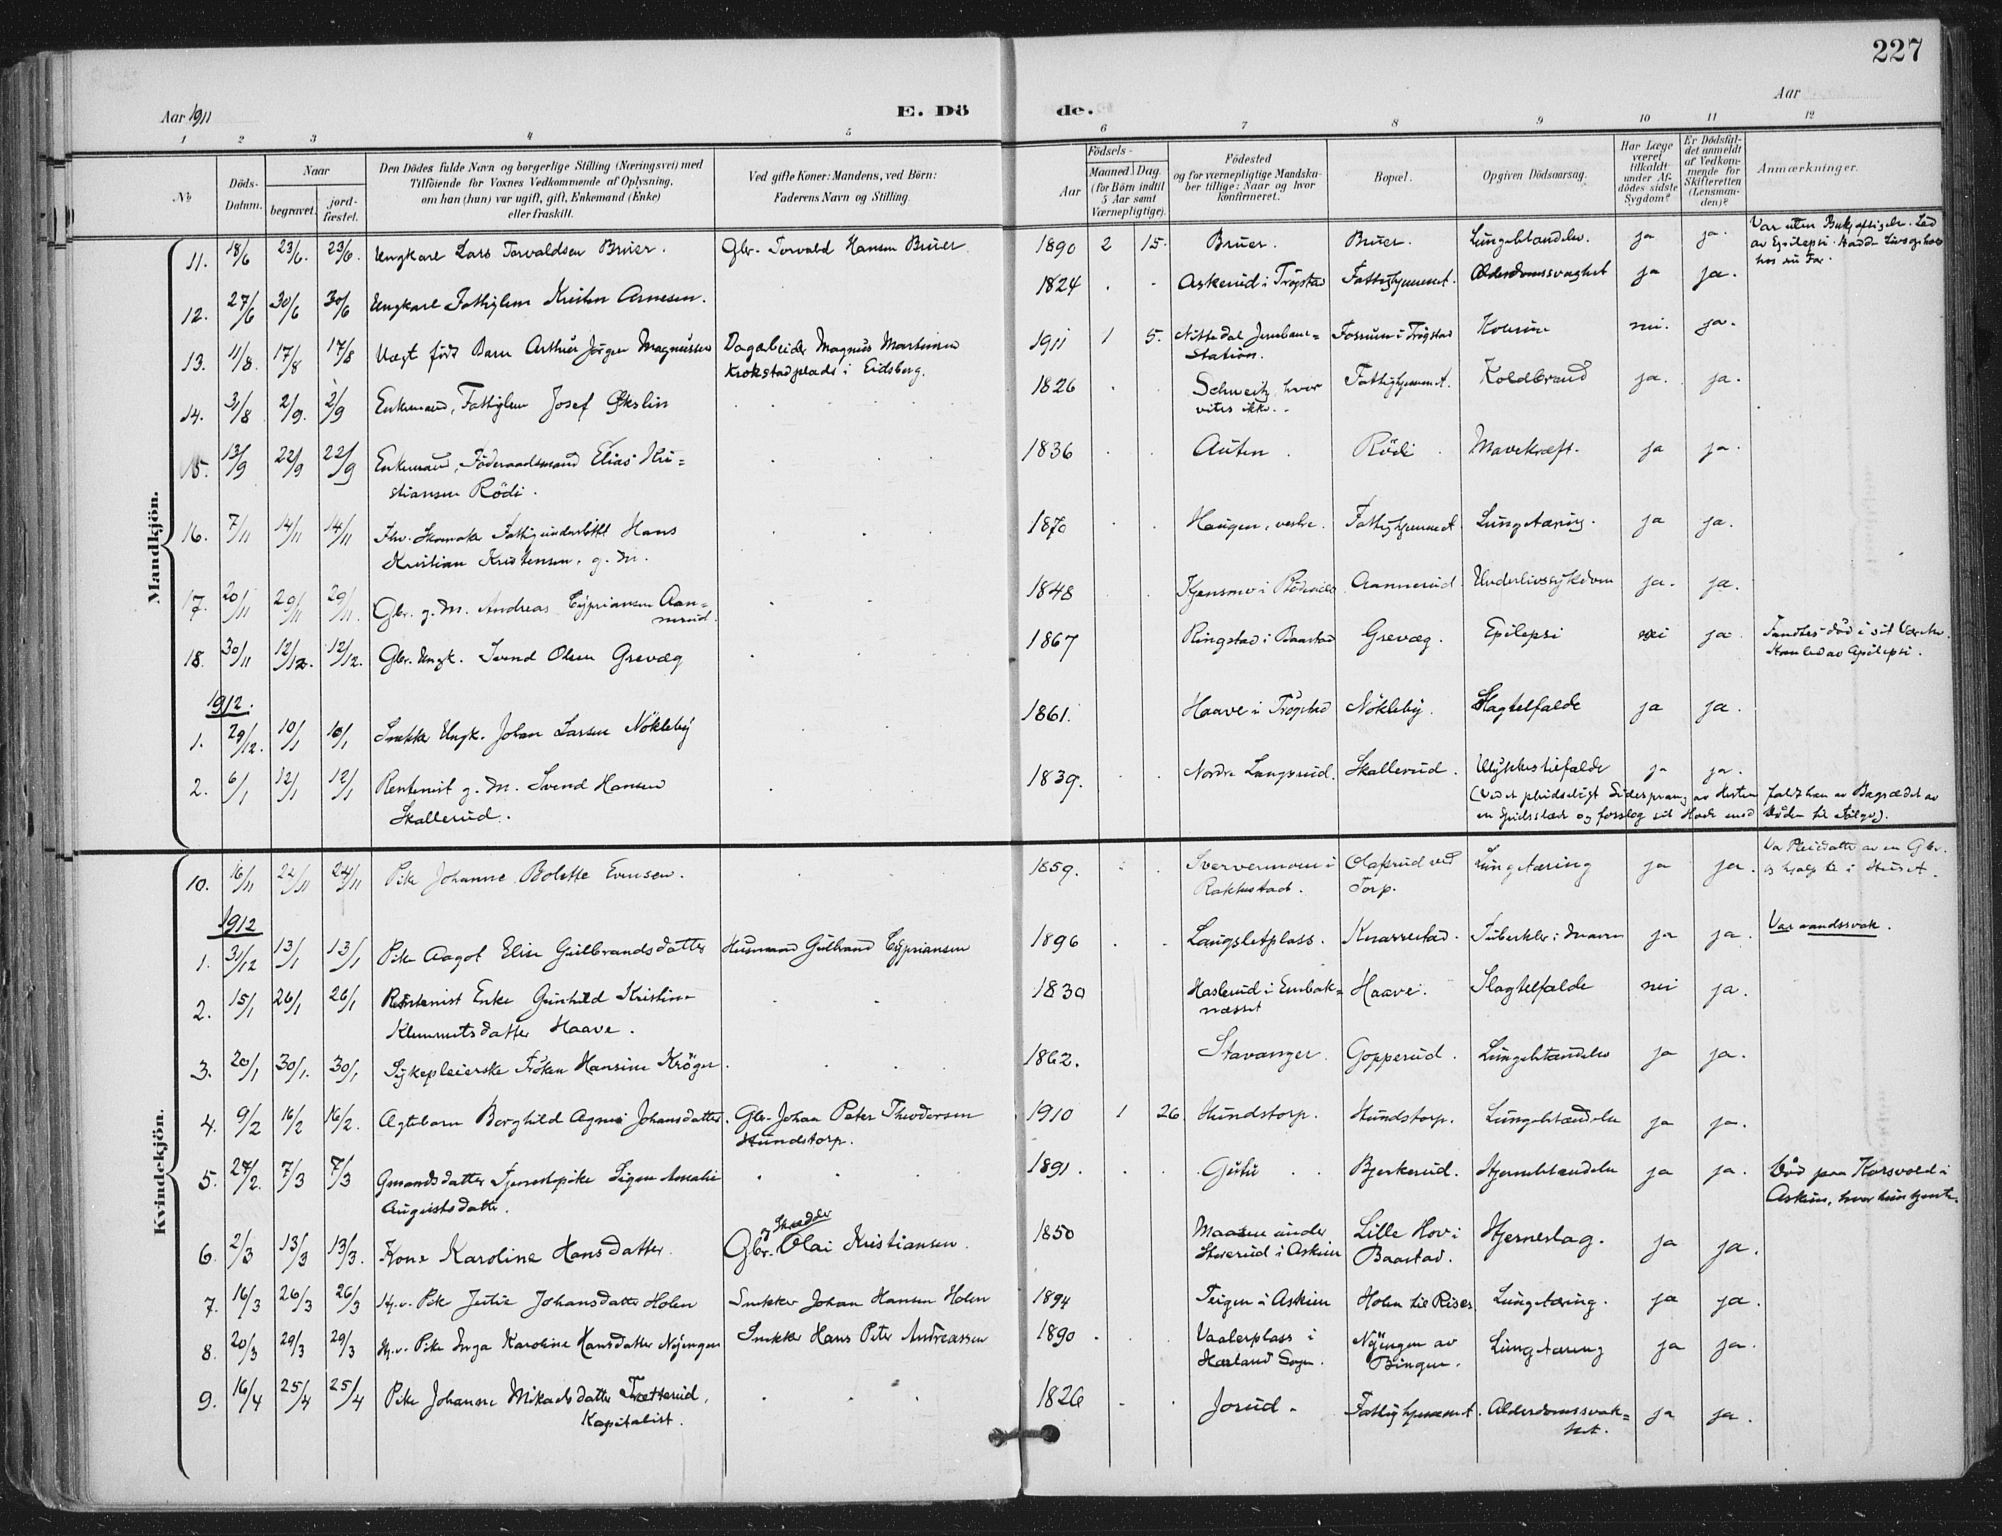 227
Aar 1911
E. Dö de.
Aar
1 2 3 4 5 6 7 8 9 10 11 12
No
Döds-Datum.
Naar
begravet.
jord-fæstet.
Den Dödes fulde Navn og borgerlige Stilling (Næringsvei) med
Tilföiende for Voxnes Vedkommende af Oplysning,
om han (hun) var ugift, gift, Enkemand (Enke)
eller fraskilt.
Ved gifte Koner: Mandens, ved Börn:
Faderens Navn og Stilling.
Födsels-
Aar
Maaned Dag.
(for Börn indtil
5 Aar samt
Værnepligtige).
Födested
og for værnepligtige Mandska-
ber tillige: Naar og hvor
konfirmeret.
Bopæl.
Opgiven Dödsaarsag.
Har Læge
været
tilkaldt
under Af-
dödes sidste
Sygdom?
Er Dödsfal-
det anmeldt
af Vedkom-
mende for
Skifteretten
(Lensman-
den)?
Anmærkninger.
Mandkjön.
11. 18/6 23/6. 23/6. Ungkarl Lars Torvaldsen Bruer. Gbr. Torvald Hansen Bruer 1890 2 15. Bruer. Bruer. Lungebetændelse. ja ja. Var uten
av Epilepsi. Hadde
hos sin Far.
12. 27/6 30/6 30/6 Ungkarl Fattiglem Kristen Arnesen. 1824 Askerud i Trögstad Fattighjemmet. Alderdomssvaghet ja ja.
13. 11/8. 17/8 17/8 Uægt født Barn Arthur Jörgen Magnussen Dagarbeider Magnus Martinsen 1911 1 5. Nittedal Jernbane- Fossum i Trögstad nei. ja.
Krokstadplads i Eidsberg. Station.
14. 31/8 2/9. 2/9 Enkemand, Fattiglem Josef Økslin 1826 Schweitz, hvor Fattighjemmet. Koldbrand ja. ja.
vites ikke.
15. 13/9 22/9 22/9 Enkemand, Föderaadsmand Elias Kri- 1836 Auten Rödi Mavekræft. ja ja.
stiansen Rödi.
16. 7/11 14/11 14/11 Fhv. Skomaker Fattigunderstöttet Hans 1870 Haugen, vestre. Fattighjemmet Lungetæring. ja ja.
Kristian Kristensen. g. M.
17. 20/11 29/11 29/11. Gbr. g. M. Andreas Cyprianssen Aan- 1848 Kjensmo i Aannerud Underlivssykdom ja. ja.
nerud.
18. 30/11 12/12. 12/12. Gbr. Ungk. Svend Olsen Grevæg 1867 Ringstad i Baastad Grevæg. Epilepsi nei ja Fandtes död i sit Værelse.
Han led av Epilepsi.
1912.
1. 29/12. 10/1 10/1 Snekker Ungk. Johan Larsen Nökleby 1861. Haave i Trögstad Nökleby. Slagtelfælde ja ja.
2. 6/1 12/1 12/1 Rentenist g. M. Svend Hansen 1839. Nordre Langsrud. Skallerud. Ulykkestilfælde ja ja.
Skallerud. (Ved et pludseligt Sidesprang av Hesten faldt han av Bagsædet av
en Spidsslæde og forslog sit Hode med Döden til Fölge).
Kvindekjön.
10. 16/11 24/11 24/11 Pike Johanne Bolette Evensen. 1859. i Olafsrud ved Lungetæring ja ja. Var Pleiedatter av en Gbr.
Rakkestad. Torp. og hjalp til i Huset.
1912
1. 31/12 13/1 13/1 Pike Aagot Elise Gulbrandsdatter Husmand Gulbrand Cypriansen 1896 Langsletplass. Knarrestad. Tuberkler i Maven ja ja. Var aandssvak.
2. 15/1 26/1 26/1 Rentenist Enke Gunhild Kristine 1830 Haslerud i Enebak- Haave. Slagtelfælde nei ja.
Klemmetsdatter Haave. næsset
3. 20/1 30/1. 30/1 Sykepleierske Fröken Hansine Kröger. 1862. Stavanger. Gopperud. Lungebetændelse ja ja.
4. 9/2 16/2 16/2. Ægtebarn Borghild Agnes Johansdatter. Gbr. Johan Peter Theodorsen 1910 1 26. Hundstorp. Hundstorp. Lungebetændelse ja ja.
Hundstorp.
5. 27/2. 7/3 7/3 Gmandsdatter Tjenestepike Signe Amalie 1891. Bjerkerud. Hjernebetændelse ja ja. Död paa Korsvold i
Augustsdatter. Askim, hvor hun tjente.
og Skrædder
6. 2/3 13/3 13/3. Kone Karoline Hansdatter. Gbr. Olai Kristiansen. 1850 Maasen under Lille Hov i Hjerneslag. ja ja.
i Askim Baastad.
7. 16/3 26/3 26/3 Hj.v. Pike Julie Johansdatter Holen Snekker Johan Hansen Holen 1894 Teigen i Askim Holen til Riser Lungetæring. ja ja.
8. 20/3 29/3 29/3 Hj.v. Pike Inga Karoline Hansdatter Nyjengen Snekker Hans Peter Andreassen 1890 Vaalerplass i Nyengen av Lungetæring ja ja.
Hærland Sogn. Bingen.
9. 16/4 25/4 25/4 Pike Johanne Mikaelsdatter Trætterud, 1826 Jorud. Fattighjemmet. Alderdomssvak- ja ja.
Kapitalist. het.